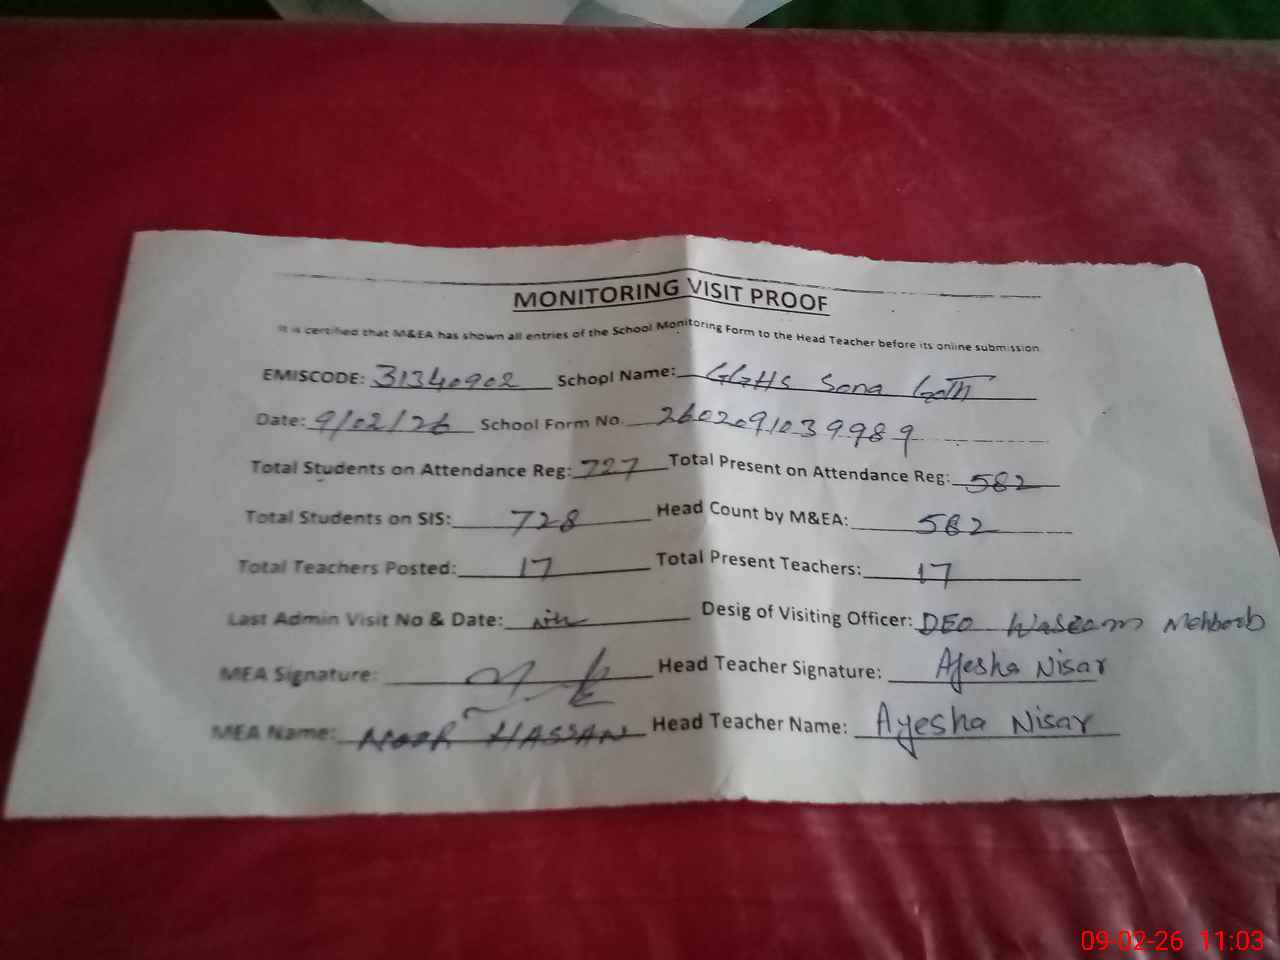 MONITORING VISIT PROOF
It is certified that M&EA has shown all entries of the School Monitoring Form to the Head Teacher before its online submission
EMISCODE: 31340902 School Name: GGHS Sona Goth
Date: 9/02/26 School Form No. 2602091039989
Total Students on Attendance Reg: 727 Total Present on Attendance Reg: 582
Total Students on SIS: 728 Head Count by M&EA: 582
Total Teachers Posted: 17 Total Present Teachers: 17
Last Admin Visit No & Date: Nil Desig of Visiting Officer: DEO Waseem Mehboob
MEA Signature: Head Teacher Signature: Ayesha Nisar
MEA Name: NOOR HASSAN Head Teacher Name: Ayesha Nisar
09-02-26 11:03